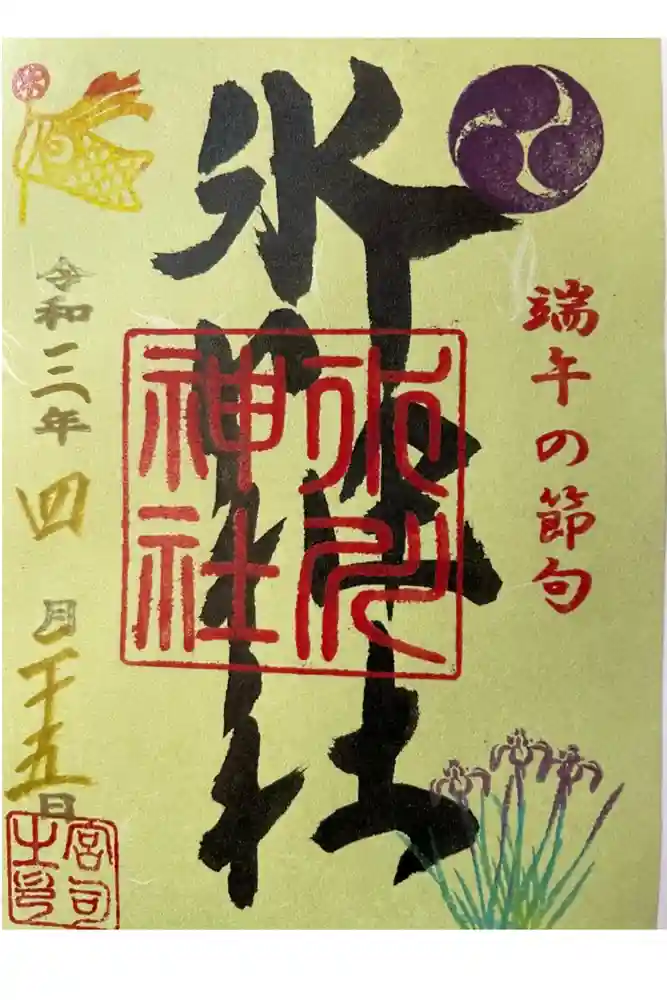 端午の節句
氷川神社
氷川神社
令和三年四月二十五日
宮司之印